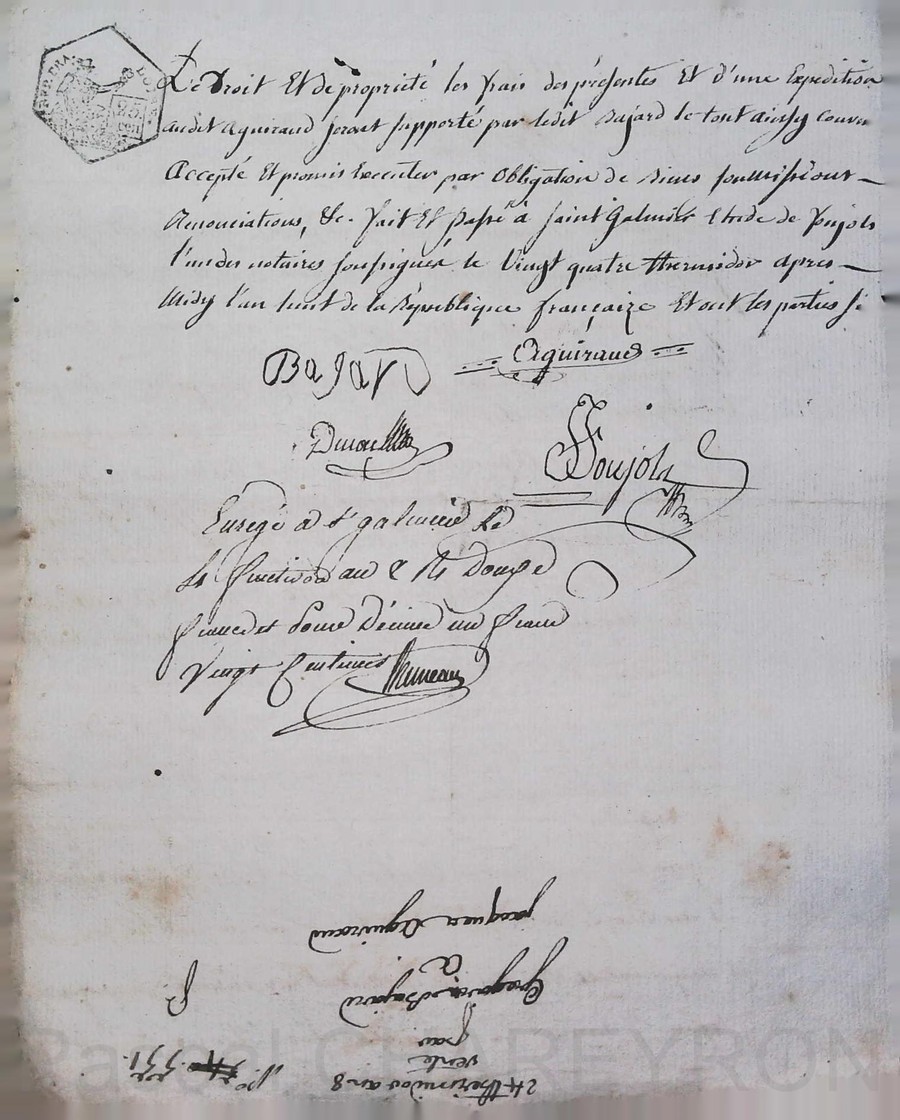 Le Droit Et de propriété les frais des présentes Et d'une Expedition
audit aguiraud seront supporté par ledit Bajard le tout ainsy conv
Accepté Et promis Executer par obligation de Biens soumissions
Renonciations, &c. fait Et passé à Saint Galmier Etude de Poujols
l'un des notaires soussignés le Vingt quatre thermidor apres
Midy l'an huit de la République françaize Et ont les parties si
BAJAR Aguiraud
Poujols
Enregé a St galmier Le
an 8 Rs Douze
francs et Pour Décime un franc
Vingt Centimes
24 thermidor an 8
vente
par
Bajard
A
jacques Aguiraud
N° 551